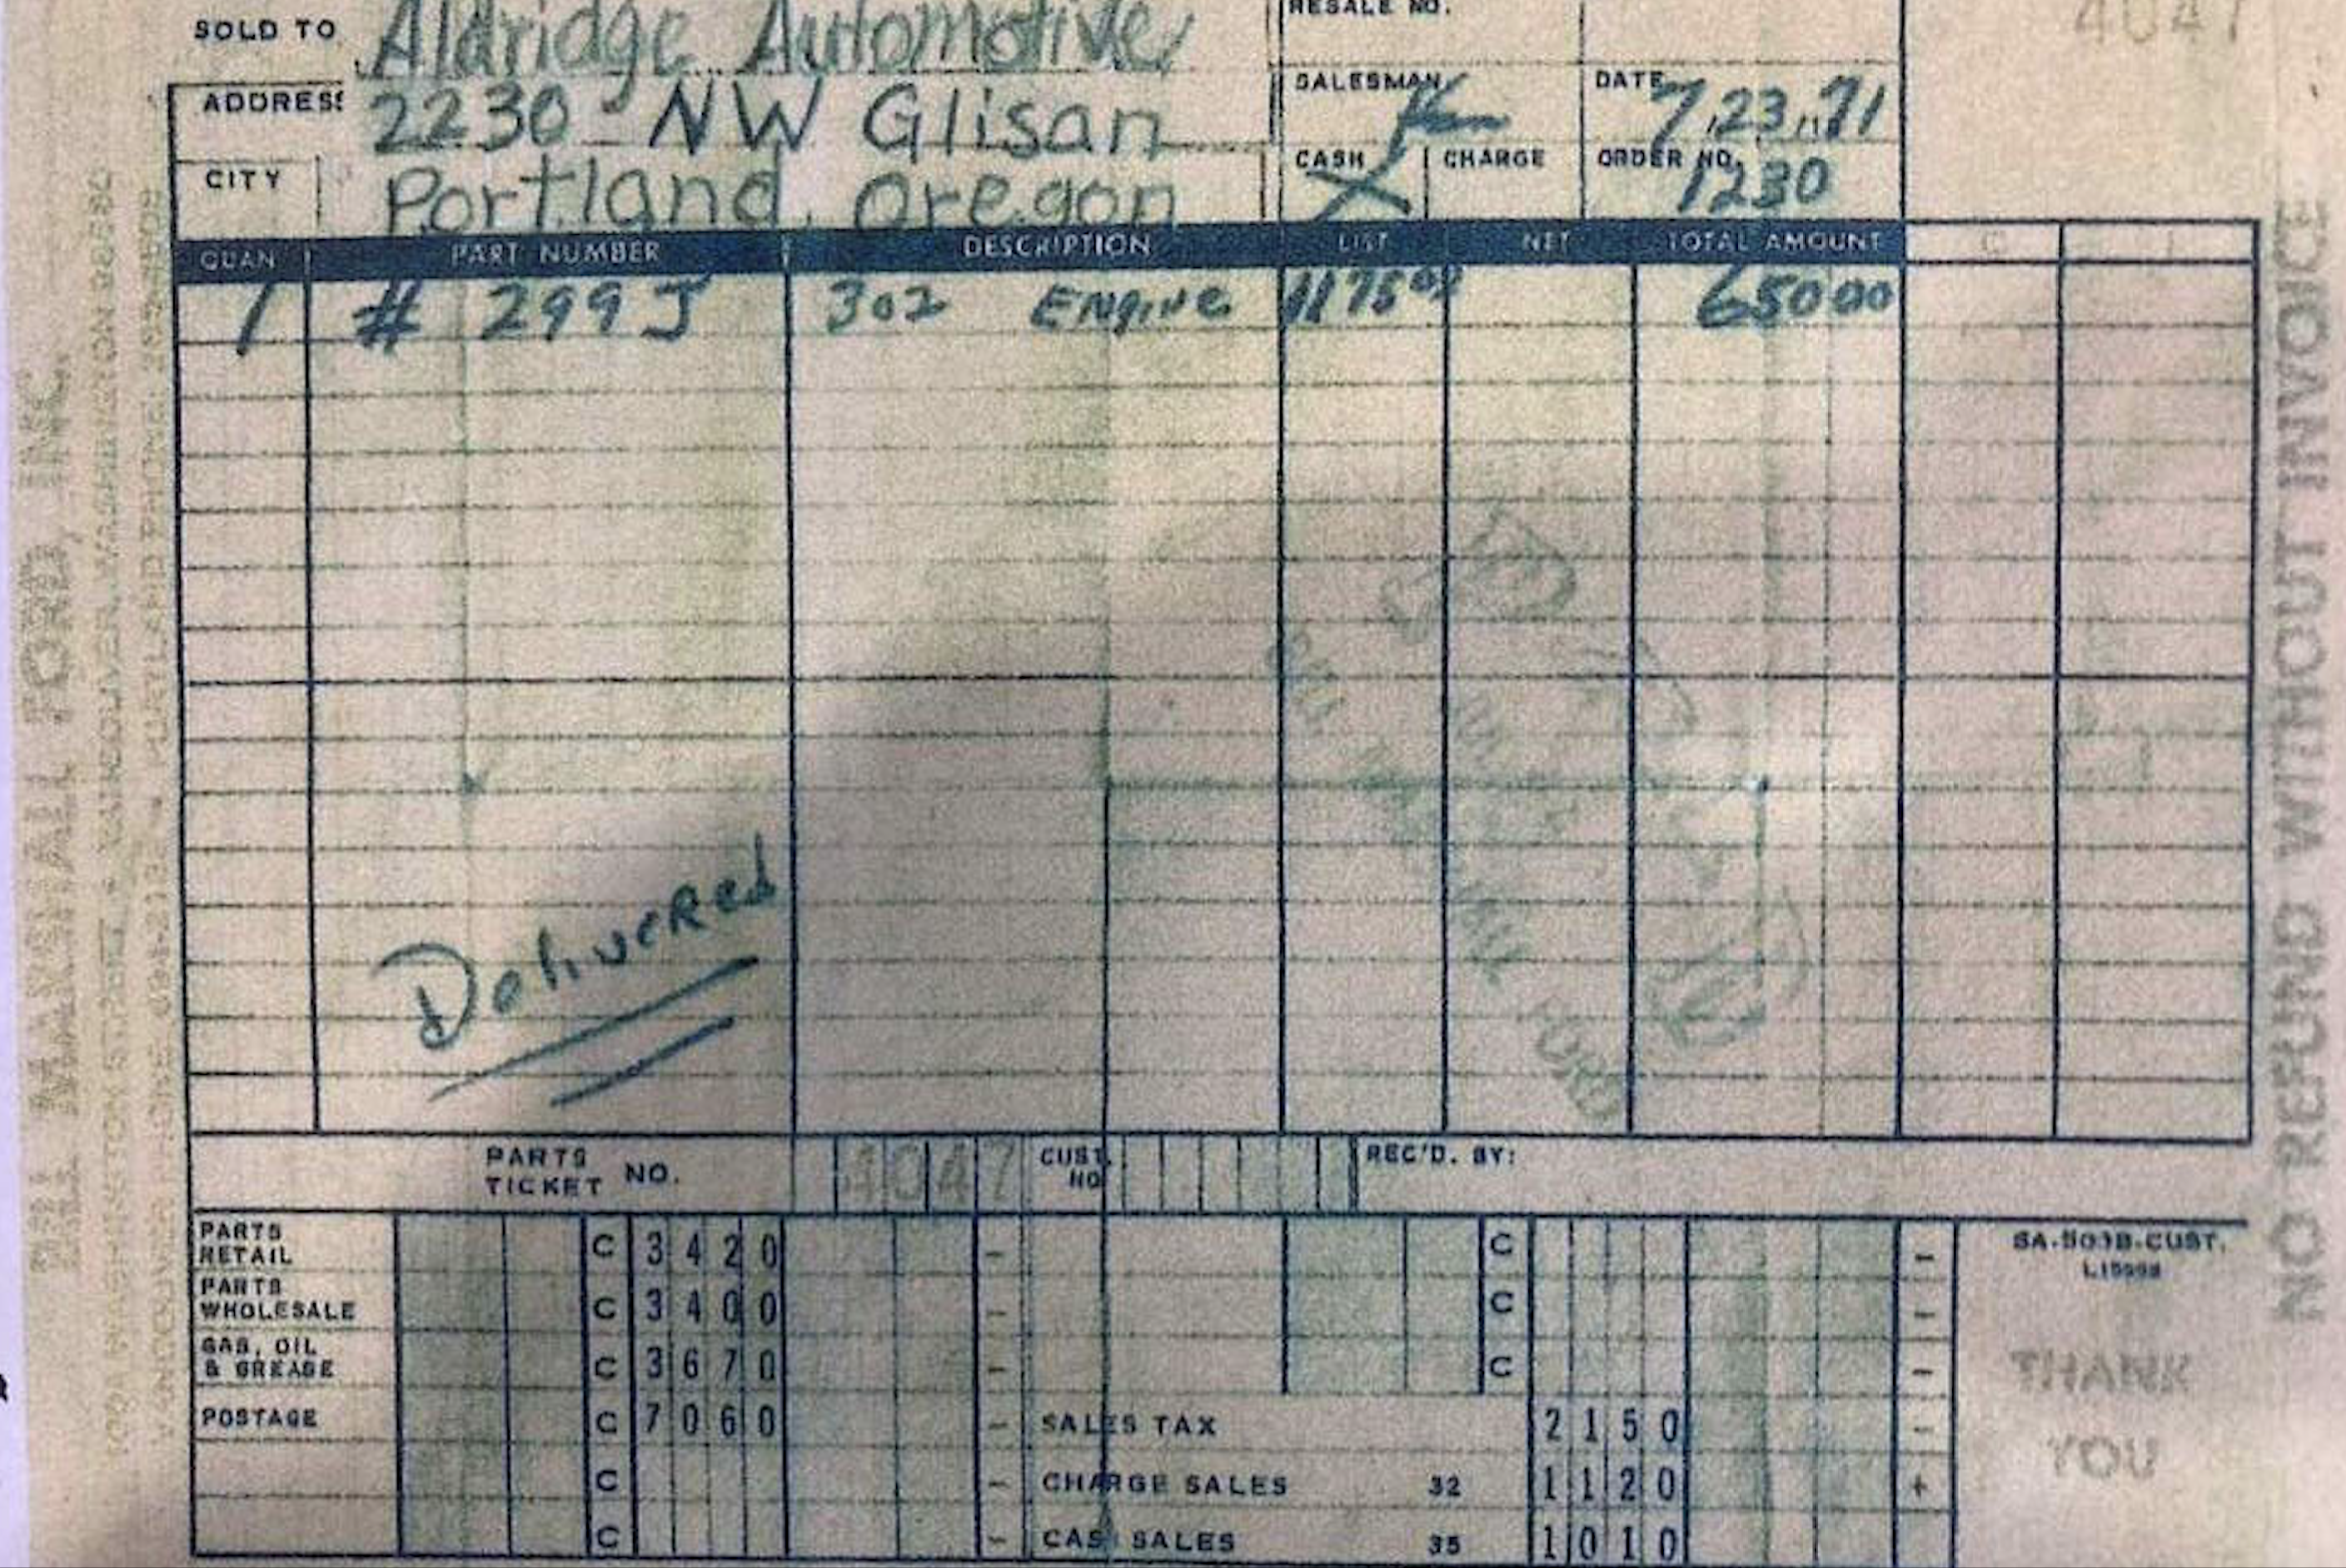 SOLD TO Aldridge Automotive RESALE NO. 4047
ADDRESS 2230 - NW Glisan SALESMAN DATE 7,23,71
CITY Portland, Oregon CASH X CHARGE ORDER NO. 1230
QUAN PART NUMBER DESCRIPTION LIST NET TOTAL AMOUNT
1 # 299J 302 ENgiNe 1175 00 650 00
PAID
FORD
Delivered
PARTS TICKET NO. 4047 CUST. NO. REC'D. BY:
PARTS RETAIL C 3420 - C -
PARTS WHOLESALE C 3400 - C -
GAS, OIL & GREASE C 3670 - C -
POSTAGE C 7060 - SALES TAX 2150 -
C - CHARGE SALES 32 1120 +
C - CASH SALES 35 1010
SA-503B-CUST.
THANK
YOU
MARSHALL FORD, INC.
NO REFUND WITHOUT INVOICE